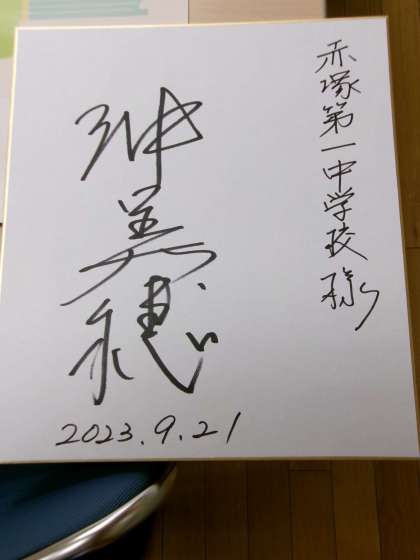 赤塚第一中学校様
沖美穂
2023.9.21